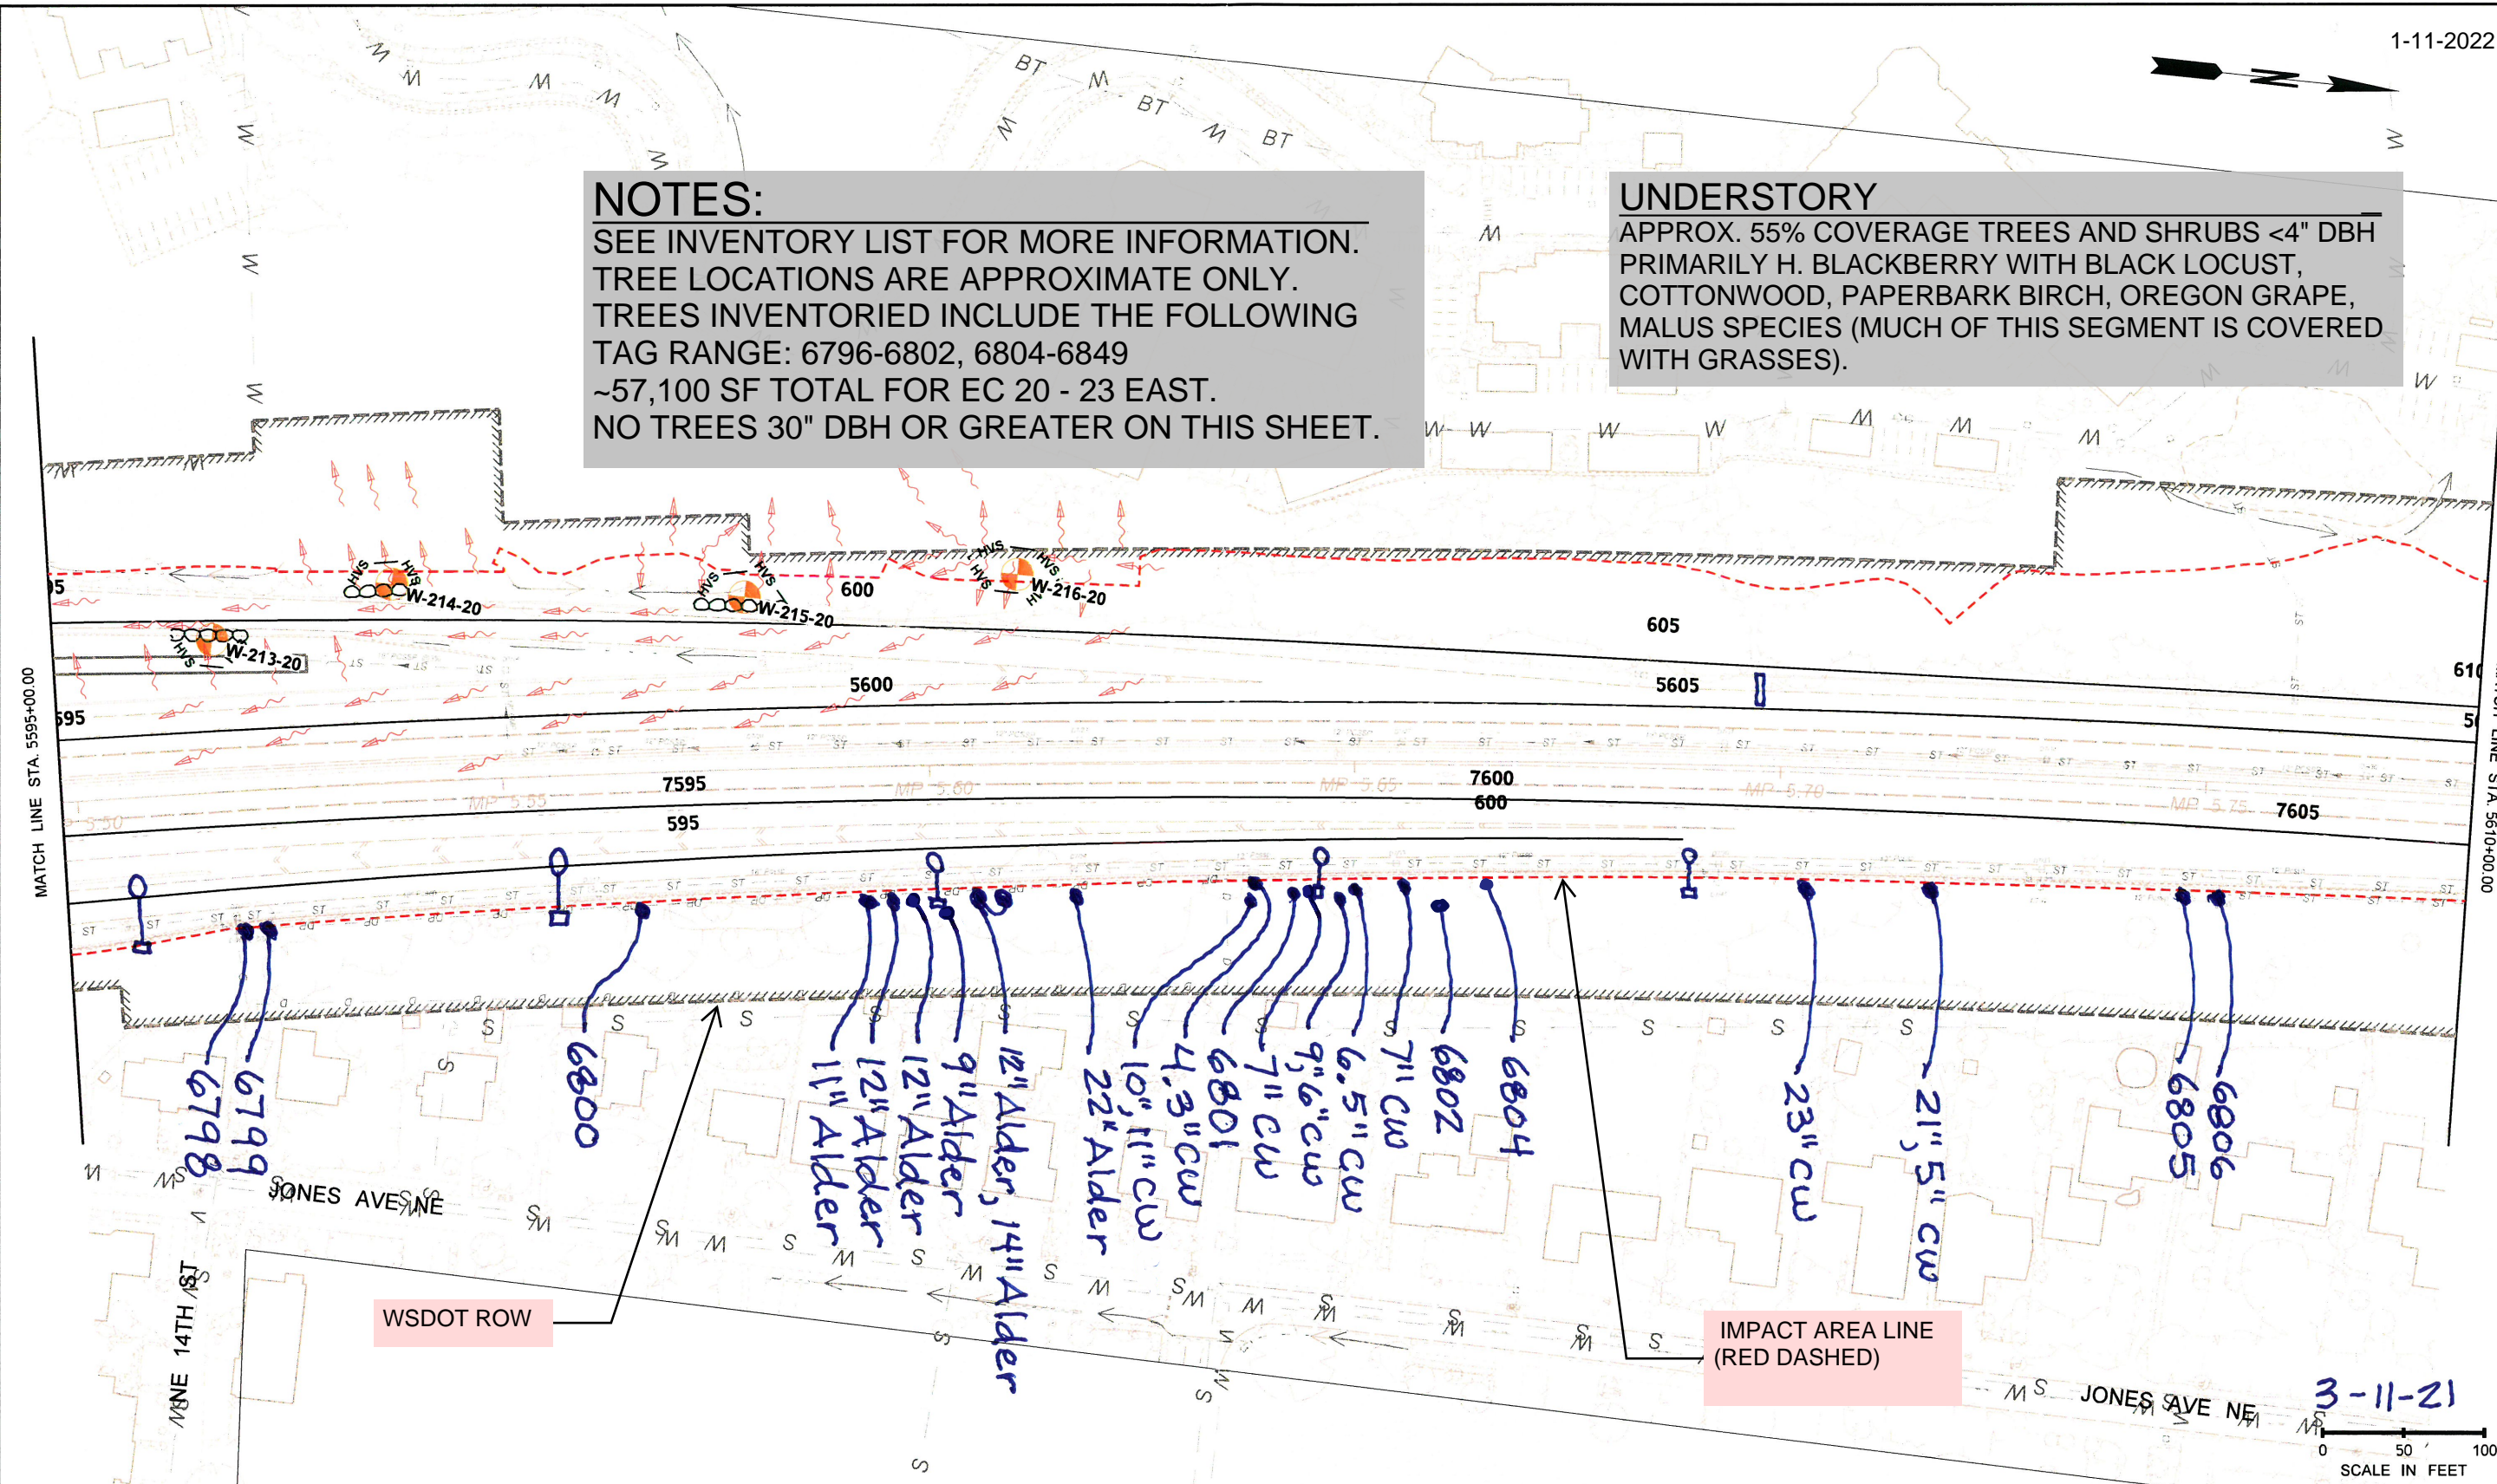 1-11-2022
N
NOTES:
SEE INVENTORY LIST FOR MORE INFORMATION.
TREE LOCATIONS ARE APPROXIMATE ONLY.
TREES INVENTORIED INCLUDE THE FOLLOWING
TAG RANGE: 6796-6802, 6804-6849
~57,100 SF TOTAL FOR EC 20 - 23 EAST.
NO TREES 30" DBH OR GREATER ON THIS SHEET.
UNDERSTORY
APPROX. 55% COVERAGE TREES AND SHRUBS <4" DBH
PRIMARILY H. BLACKBERRY WITH BLACK LOCUST,
COTTONWOOD, PAPERBARK BIRCH, OREGON GRAPE,
MALUS SPECIES (MUCH OF THIS SEGMENT IS COVERED
WITH GRASSES).
BT
BT
BT
HVS
HVS
W-214-20
HVS
HVS
W-215-20
HVS
HVS
HVS
W-216-20
HVS
W-213-20
600
605
610
5600
5605
595
7595
595
7600
600
7605
MP 5.55
MP 5.60
MP 5.65
MP 5.70
MP 5.75
MATCH LINE STA. 5595+00.00
LINE STA. 5610+00.00
6798
6799
6800
11" Alder
12" Alder
12" Alder
9" Alder
12" Alder, 14" Alder
22" Alder
10", 11" CW
4.3" CW
6801
7" CW
9", 6" CW
6.5" CW
7" CW
6802
6804
23" CW
21", 5" CW
6805
6806
JONES AVE NE
NE 14TH ST
WSDOT ROW
IMPACT AREA LINE
(RED DASHED)
JONES AVE NE
3-11-21
0 50 100
SCALE IN FEET